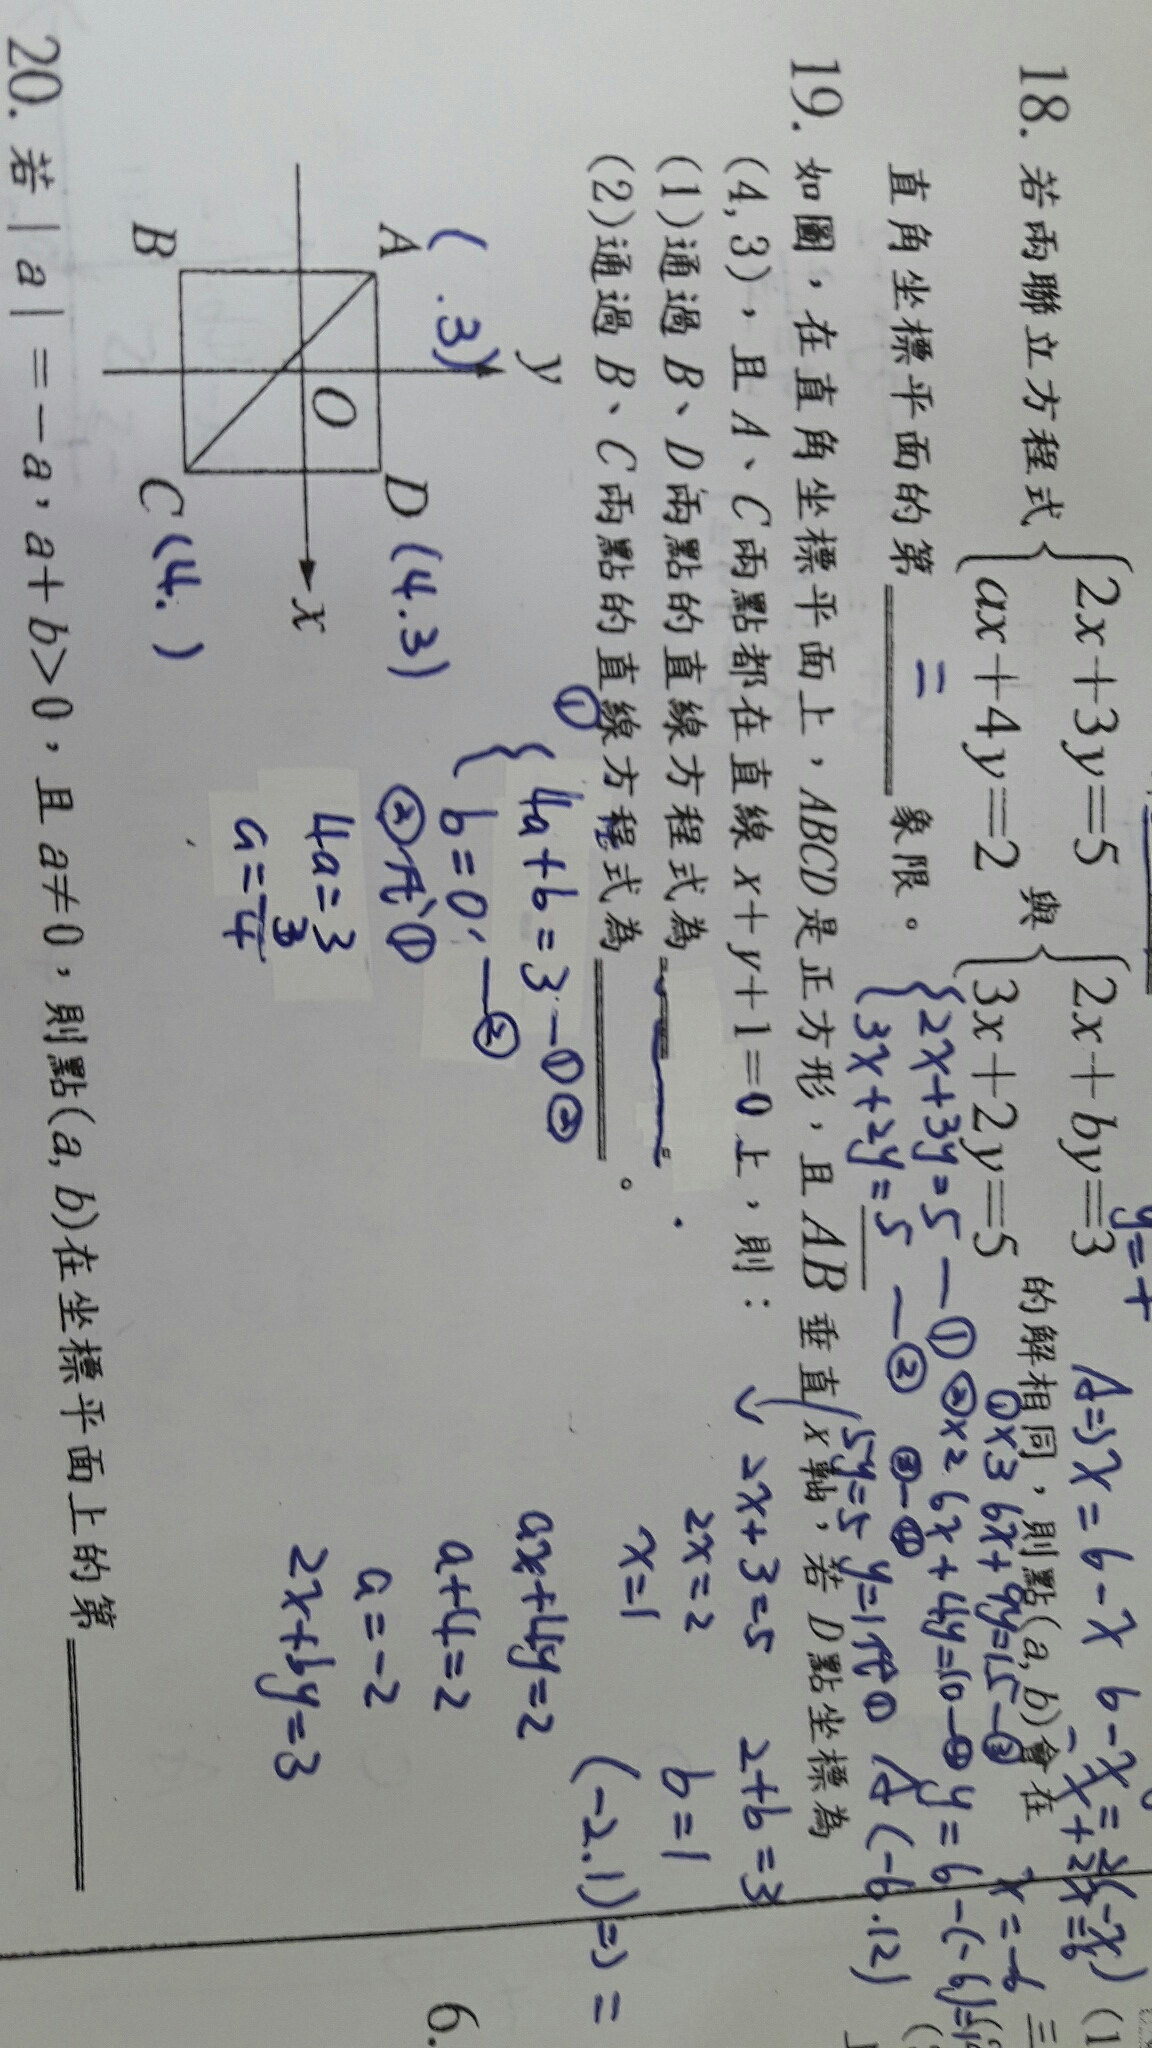 18. 若兩聯立方程式 { 2x+3y=5 ax+4y=2 與 { 2x+by=3 3x+2y=5 的解相同,則點(a, b)會在
直角坐標平面的第 二 象限。
{ 2x+3y=5 —①
3x+2y=5 —②
①×3 6x+9y=15—③
②×2 6x+4y=10—④
③-④
5y=5 y=1代①
A⇒x=6-x
x=-6
A(-6.12)
19. 如圖,在直角坐標平面上,ABCD是正方形,且 AB 垂直 x 軸,若 D 點坐標為
(4, 3),且 A、C 兩點都在直線 x+y+1=0 上,則:
(1)通過 B、D 兩點的直線方程式為
(2)通過 B、C 兩點的直線方程式為 。
2x+3=5
2x=2
x=1
ax+4y=2
a+4=2
a=-2
2x+by=3
2+b=3
b=1
(-2.1)⇒二
①
{ 4a+b=3 —①②
b=0 —②
②代①
4a=3
a=3/4
( .3)
y
A
D (4.3)
O
x
B
C (4. )
20. 若 | a | =-a,a+b>0,且 a≠0,則點(a, b)在坐標平面上的第
6.